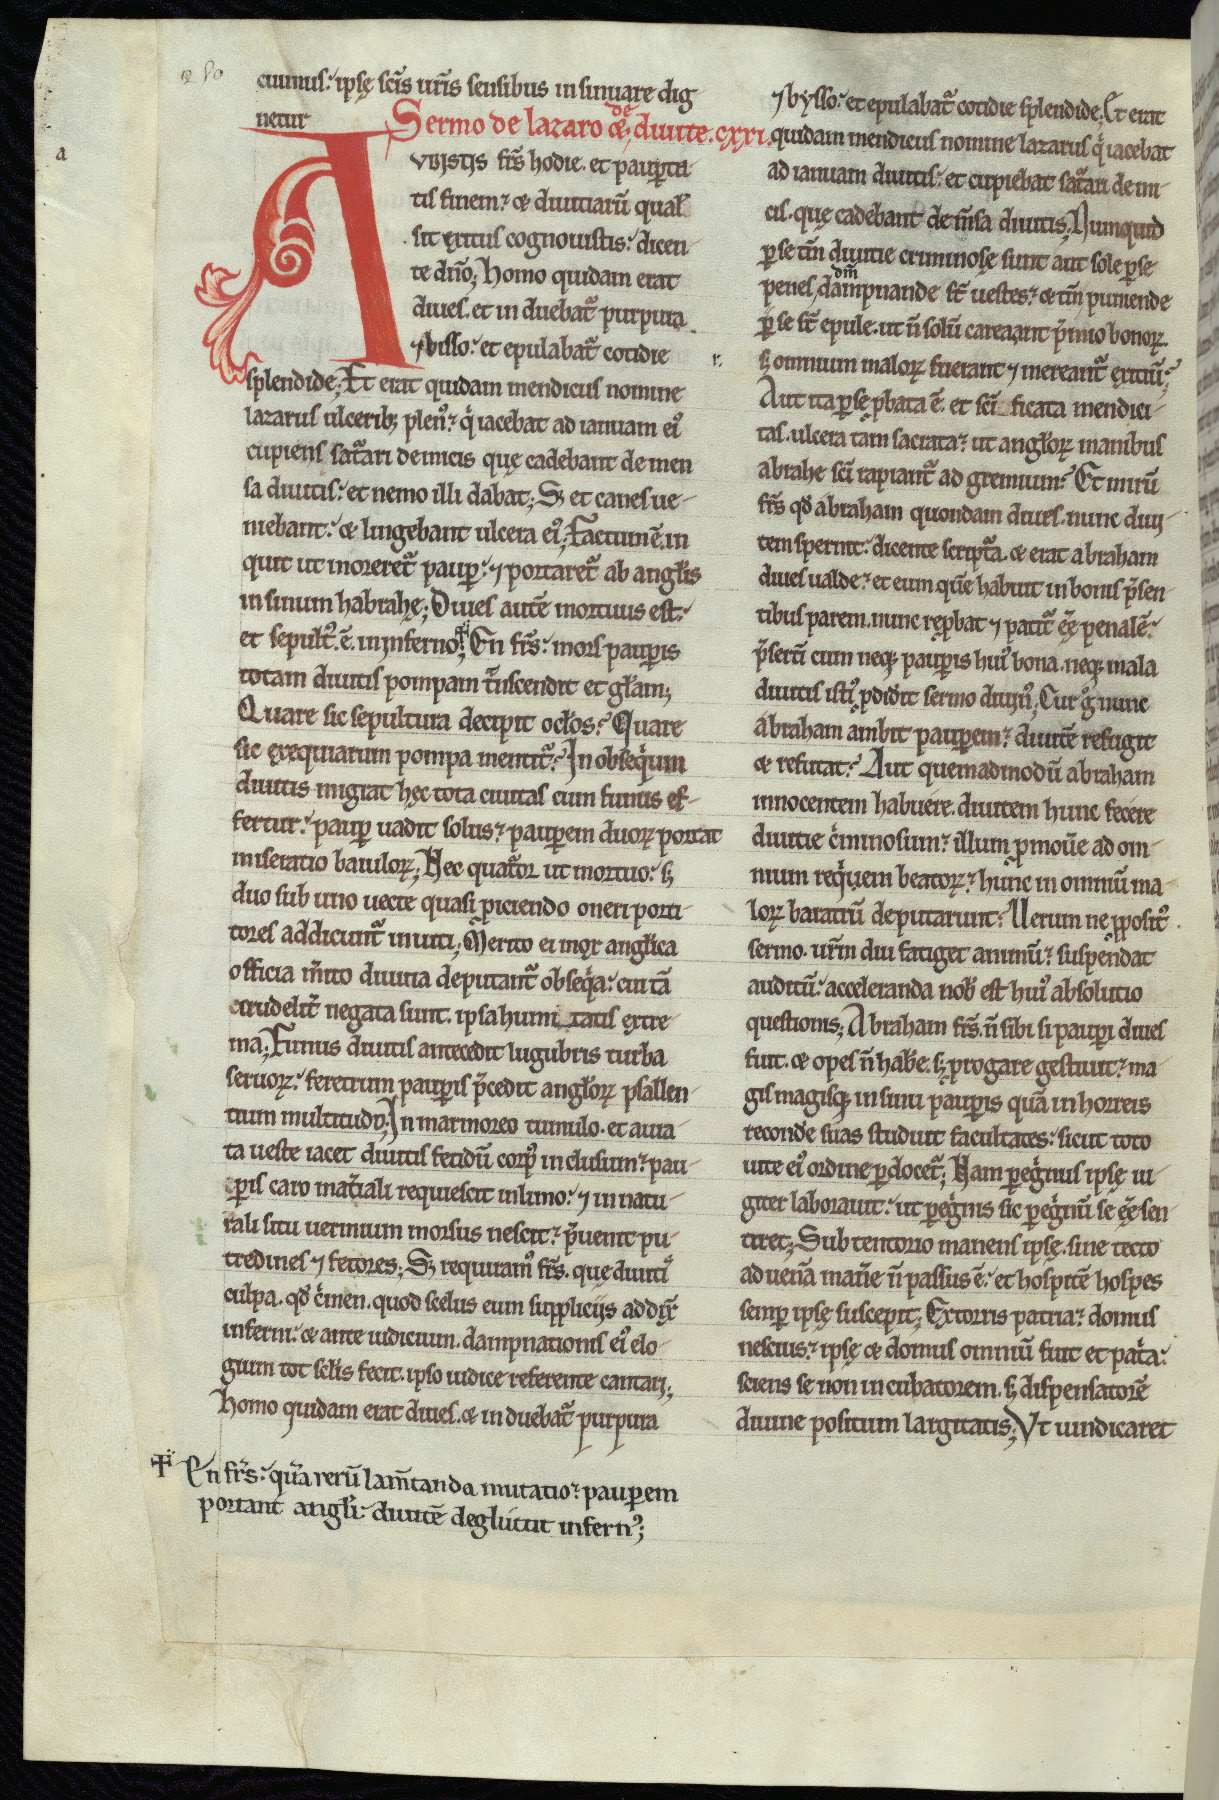 250
cuimus: ipsę scīs ur̄is sensibus insinuare dig
netur
Sermo de lazaro & de diuite. cxxi.
a
AUDISTIS fr̄s hodie. et paup̄ta
tis finem: & diuitiarū qual'
sit exitus cognouistis: dicen-
te dn̄o; Homo quidam erat
diues. et induebat᷑ purpura
⁊ bisso: et epulabat᷑ cotidie
splendide; Et erat quidam mendicus nomine
lazarus ulcerib; plen᷒: q̇ iacebat ad ianuam ei᷒
cupiens sat᷑ari de micis quę cadebant de men
sa diuitis: et nemo illi dabat; S; et canes ue-
niebant: & lingebant ulcera ei᷒; Factum ē. in
quit ut moreret᷑ paup̄: ⁊ portaret᷑ ab angl̄is
in sinum habrahę; Diues autē mortuus est:
et sepult᷒ .ē. in inferno; En fr̄s: mors paup̄is
totam diuitis pompam t᷑nscendit et gl̄am;
Quare sic sepultura decipit oc̄los: Quare
sic exequiarum pompa mentit᷑: In obseq̇um
diuitis migrat hęc tota ciuitas cum funus ef-
fertur: paup̄ uadit solus: paup̄em duorꝝ portat
miseratio baiulorꝝ; Nec quat᷑or ut mortuo: s;
duo sub uno uecte quasi ꝓiciendo oneri porti
tores addicunt᷑ inuiti; Merito ei mox angl̄ica
officia m̄ito diuina deputant᷑ obseq̇a: cui tā
crudelit᷑ negata sunt. ipsa humi tatis extre
ma; Funus diuitis antecedit lugubris turba
seruorꝝ: feretrum paup̄is p̄cedit angl̄orꝝ psallen
tium multitudo; In marmoreo tumulo. et aura
ta ueste iacet diuitis fetidū corp᷒ inclusum: pau
ꝑis caro mat᷑iali requiescit in limo: ⁊ in natu-
rali situ uermium morsus nescit: p̄uenit pu-
tredines ⁊ fetores; S; requiram᷒ fr̄s. que diuiti᷒
culpa. qd̄ ċmen. quod scelus eum suppliciis addix̄
inferni: & ante iudicium. dampnationis ei᷒ elo-
gium tot sc̄lis fecit. ipso iudice referente cantari;
Homo quidam erat diues. & induebat᷑ purpura
✝ En fr̄s: q̄ᷓ rerū lam̄tanda mutatio: paup̄em
portant angl̄i: diuitē degluttit infern᷒;
⁊ bysso: et epulabat᷑ cotidie splendide; Et erat
quidam mendicus nomine lazarus q̇ iacebat
ad ianuam diuitis: et cupiebat sat᷑ari de mi-
cis. quę cadebant de m̄sa diuitis; Numquid
ꝑ se tm̄ diuitie criminosę sunt aut sole ꝑ se
penes dm̄ dampnande st̄ uestes: & tm̄ puniende
ꝑ se st̄ epule. ut n̄ solū careant p̄mio bonorꝝ.
s; omnium malorꝝ fuerant ⁊ mereant᷑ exitiū:
Aut ita ꝑ sę ꝓbata ē. et sc̄i ficata mendici-
tas. ulcera tam sacrata: ut angl̄orꝝ manibus
abrahe sc̄i rapiant᷑ ad gremium: Et mirū
fr̄s qd̄ abraham quondam diues. nunc diui
tem spernit: dicente script᷑a. & erat abraham
diues ualde: et eum quē habuit in bonis p̄sen
tibus parem. nunc reꝓbat ⁊ patit᷑ ēē penalē:
p̄sertī cum neq; paup̄is hui᷒ bona. neq; mala
diuitis isti᷒ ꝓdid̄it sermo diuin᷒; Cur g̊ nunc
abraham ambit paup̄em: diuitē refugit
& refutat: Aut quemadmodū abraham
innocentem habuere. diuitem hunc fecere
diuitie ċminosum: illum ꝓmou̅e ad om-
nium req̇em beatorꝝ: hunc in omniū ma-
lorꝝ baratrū deputarunt: Uerum ne ꝓposit᷒
sermo. ur̄m diu fatiget animū: suspendat
auditū: acceleranda nob̄ est hui᷒ absolutio
questionis; Abraham fr̄s. n̄ sibi s; paup̄i diues
fuit. & opes n̄ hab̄e. s; ꝓrogare gestiuit: ma
gis magisq; in sinu paup̄is quā in horreis
recond̄e suas studuit facultates: sicut toto
uite ei᷒ ordine ꝑdocet᷑; Nam ꝑeg̊nus ipsę iu-
giter laborauit: ut ꝑeg̊nis sic ꝑeg̊nū se ēē sen-
tiret; Sub tentorio manens ipsę. sine tecto
aduenā man̄e n̄ passus ē: et hospitē hospes
semp̄ ipsę suscepit; Extorris patria: domus
nescius: ipsę & domus omniū fuit et pat᷑ia:
sciens se non incubatorem. s; dispensatorē
diuine positum largitatis; Ut uindicaret